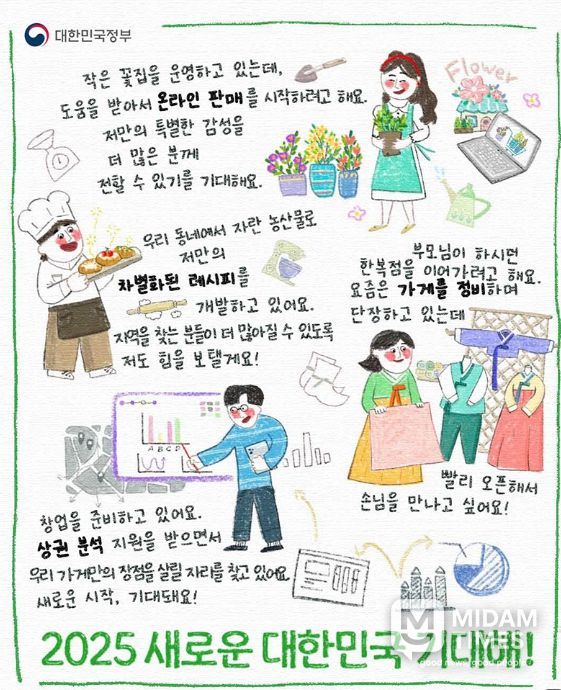 대한민국정부
작은 꽃집을 운영하고 있는데,
도움을 받아서 온라인 판매를 시작하려고 해요.
저만의 특별한 감성을
더 많은 분께
전할 수 있기를 기대해요.
Flower
우리 동네에서 자란 농산물로
저만의
차별화된 레시피를
개발하고 있어요.
지역을 찾는 분들이 더 많아질 수 있도록
저도 힘을 보탤게요!
부모님이 하시던
한복점을 이어가려고 해요.
요즘은 가게를 정비하며
단장하고 있는데
빨리 오픈해서
손님을 만나고 싶어요!
A B C D
창업을 준비하고 있어요.
상권 분석 지원을 받으면서
우리 가게만의 장점을 살릴 자리를 찾고 있어요.
새로운 시작, 기대돼요!
2025 새로운 대한민국 기대해!
MIDAM
TIMES